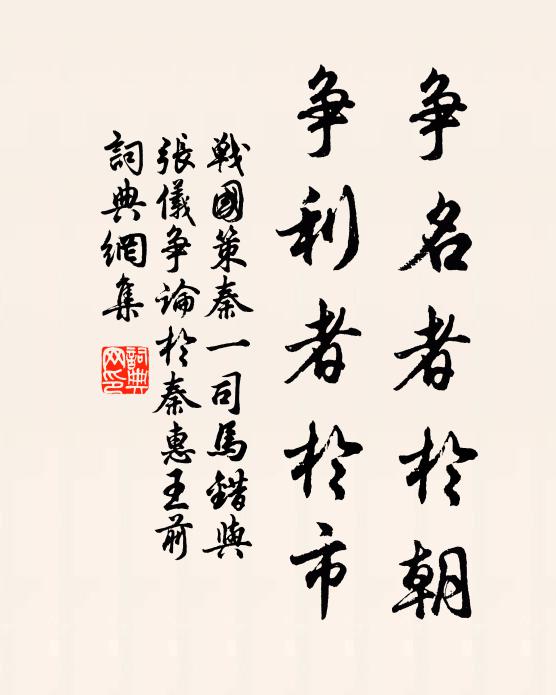 争名者於朝
争利者於市
戰國策秦一司馬錯與
張儀争論於秦惠王前
詞典網集
詞典網印